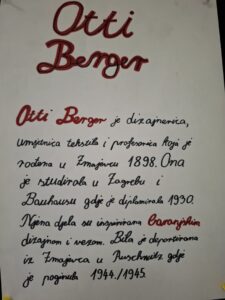 Otti
Berger
Otti Berger je dizajnerica,
umjetnica tekstila i profesorica koja je
rođena u Zmajevcu 1898. Ona
je studirala u Zagrebu i
Bauhausu gdje je diplomirala 1930.
Njena djela su inspirirana Baranjskim
dizajnom i vezom. Bila je deportirana
iz Zmajevca u Auschwitz gdje
je poginula 1944./1945.